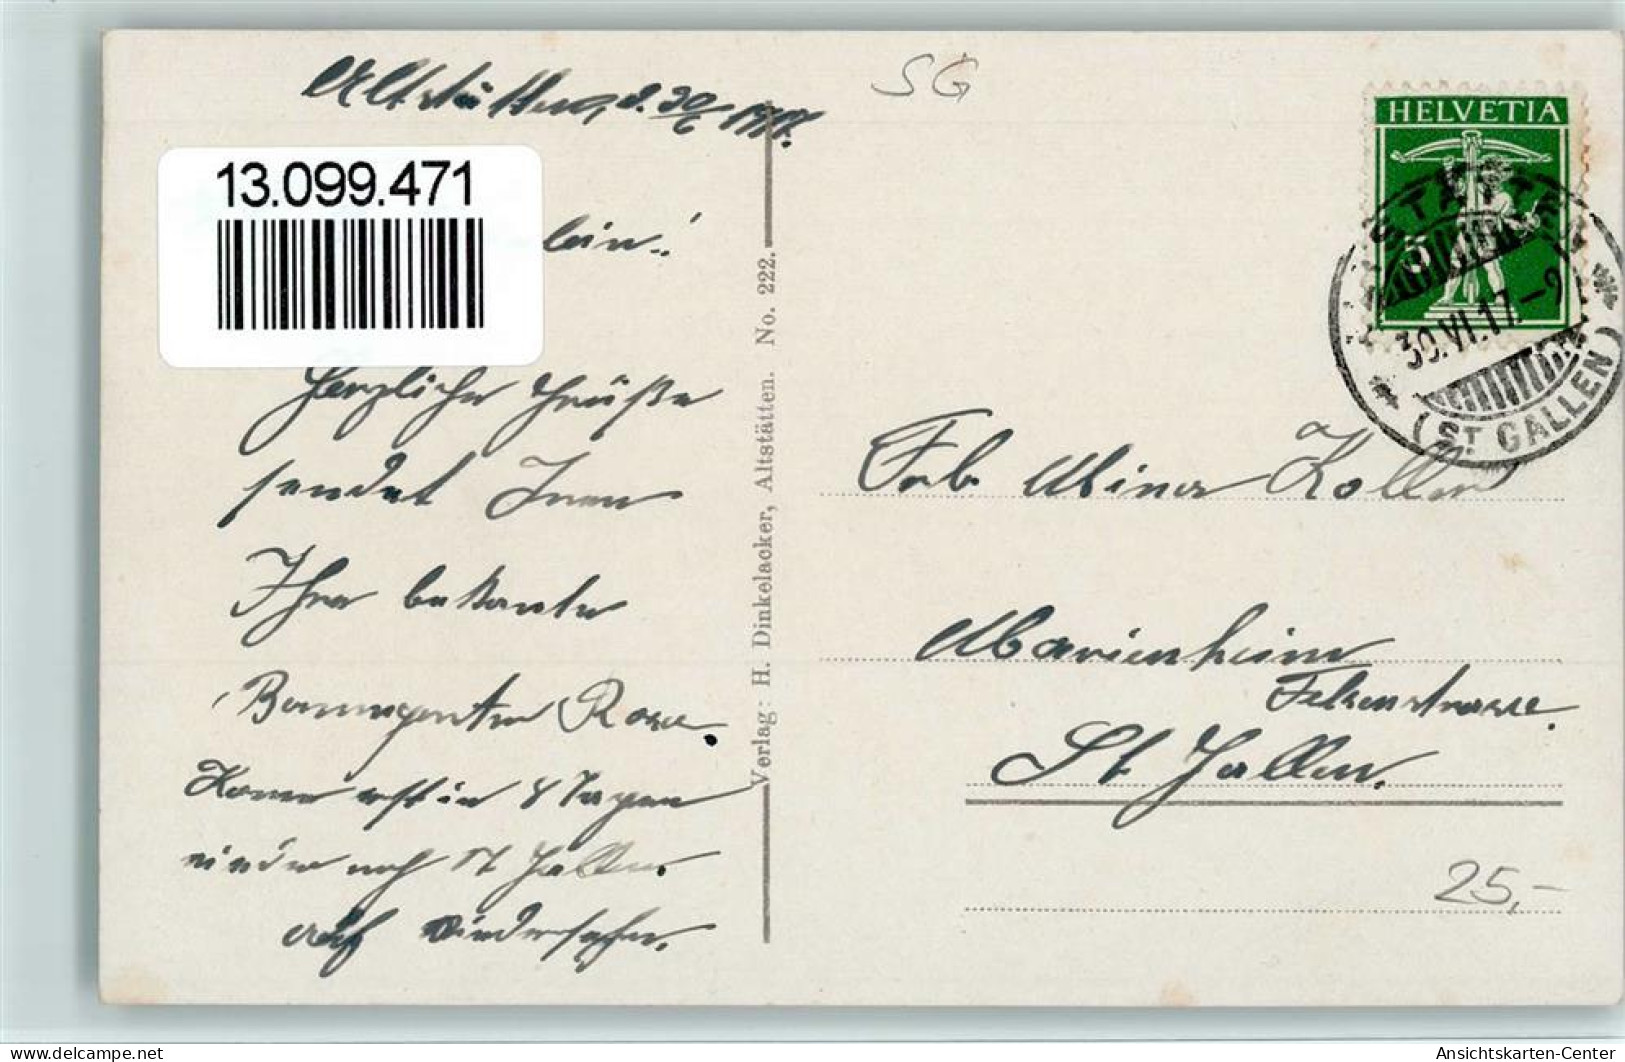 Altstätten, d. 30/6 1917.
SG
HELVETIA
5
13.099.471
lein!
ALTSTÄTTEN
30.VI.17.-9
(ST. GALLEN)
Herzliche Grüße
sendet Ihnen
Ihre bekante
Baumgartner Rosa.
Kome erst in 8 Tagen
wieder nach St Gallen.
Auf Wiedersehen.
Verlag: H. Dinkelacker, Altstätten. No. 222.
Frl. Mina Koller
Marienheim
Felsenstrasse.
St Gallen.
25,-
delcampe.net
Ansichtskarten-Center